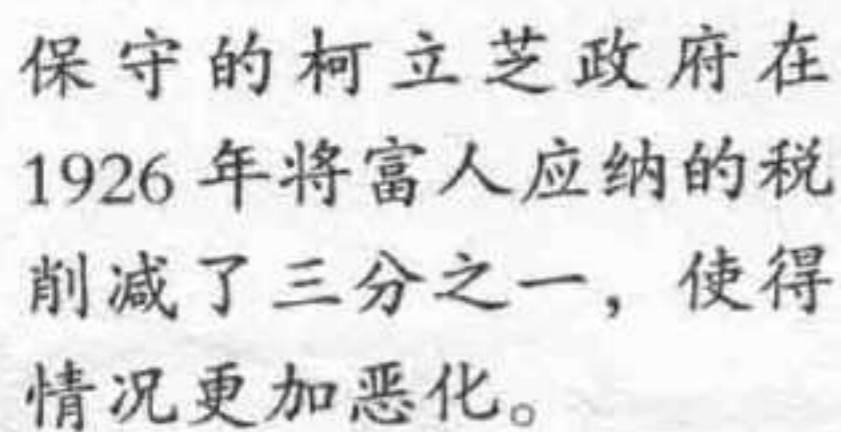 保守的柯立芝政府在
1926 年将富人应纳的税
削减了三分之一，使得
情况更加恶化。